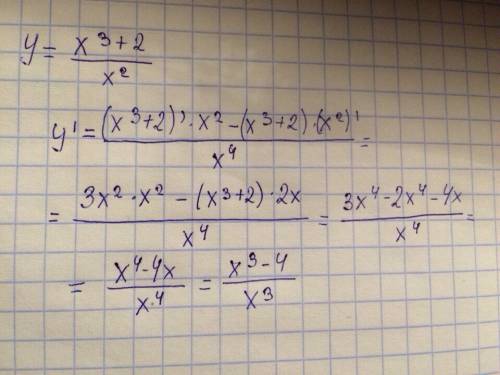 y = (x³+2)/x²
y' = ((x³+2)'·x² − (x³+2)·(x²)')/x⁴ =
= (3x²·x² − (x³+2)·2x)/x⁴ = (3x⁴−2x⁴−4x)/x⁴ =
= (x⁴−4x)/x⁴ = (x³−4)/x³